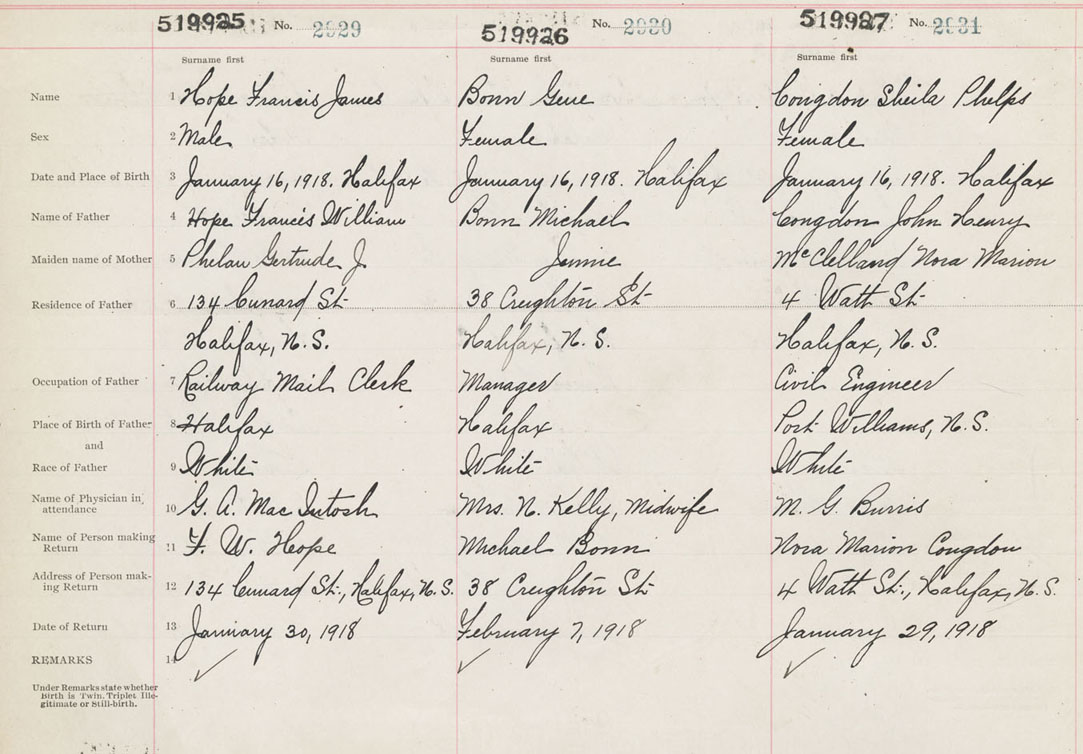 519925 No. 2929 519926 No. 2930 519927 No. 2931
Surname first Surname first Surname first
Name 1 Hope Francis James Bonn Gene Congdon Sheila Phelps
Sex 2 Male Female Female
Date and Place of Birth 3 January 16, 1918. Halifax January 16, 1918. Halifax January 16, 1918. Halifax
Name of Father 4 Hope Francis William Bonn Michael Congdon John Henry
Maiden name of Mother 5 Phelan Gertrude J. Jennie McClelland Nora Marion
Residence of Father 6 134 Cunard St. 38 Creighton St. 4 Watt St.
Halifax, N.S. Halifax, N.S. Halifax, N.S.
Occupation of Father 7 Railway Mail Clerk Manager Civil Engineer
Place of Birth of Father 8 Halifax Halifax Port Williams, N.S.
and
Race of Father 9 White White White
Name of Physician in
attendance 10 G. A. MacIntosh Mrs. N. Kelly, Midwife M. G. Burris
Name of Person making
Return 11 F. W. Hope Michael Bonn Nora Marion Congdon
Address of Person mak-
ing Return 12 134 Cunard St., Halifax, N.S. 38 Creighton St. 4 Watt St., Halifax, N.S.
Date of Return 13 January 30, 1918 February 7, 1918 January 29, 1918
REMARKS 14
Under Remarks state whether
Birth is Twin. Triplet Ille-
gitimate or Still-birth.